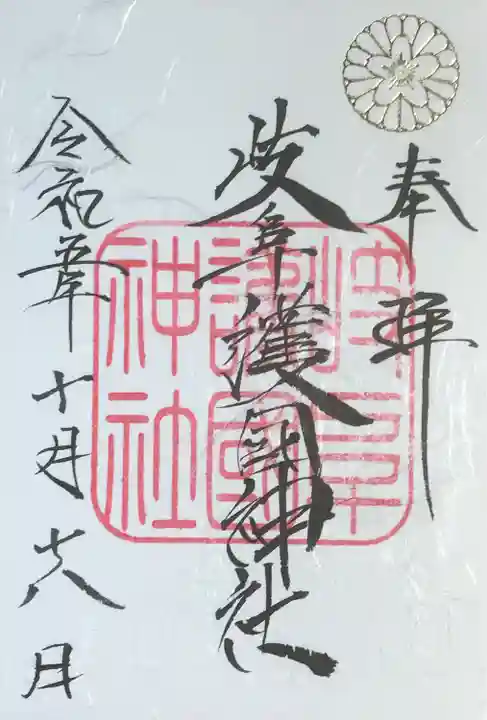 奉拝
岐阜護國神社
令和五年十月十八日
岐阜
護國
神社